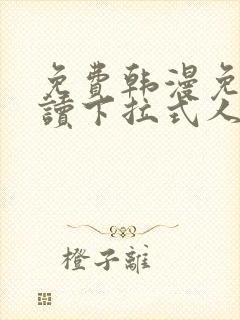 免費韩漫免
讀下拉式人
橙子離